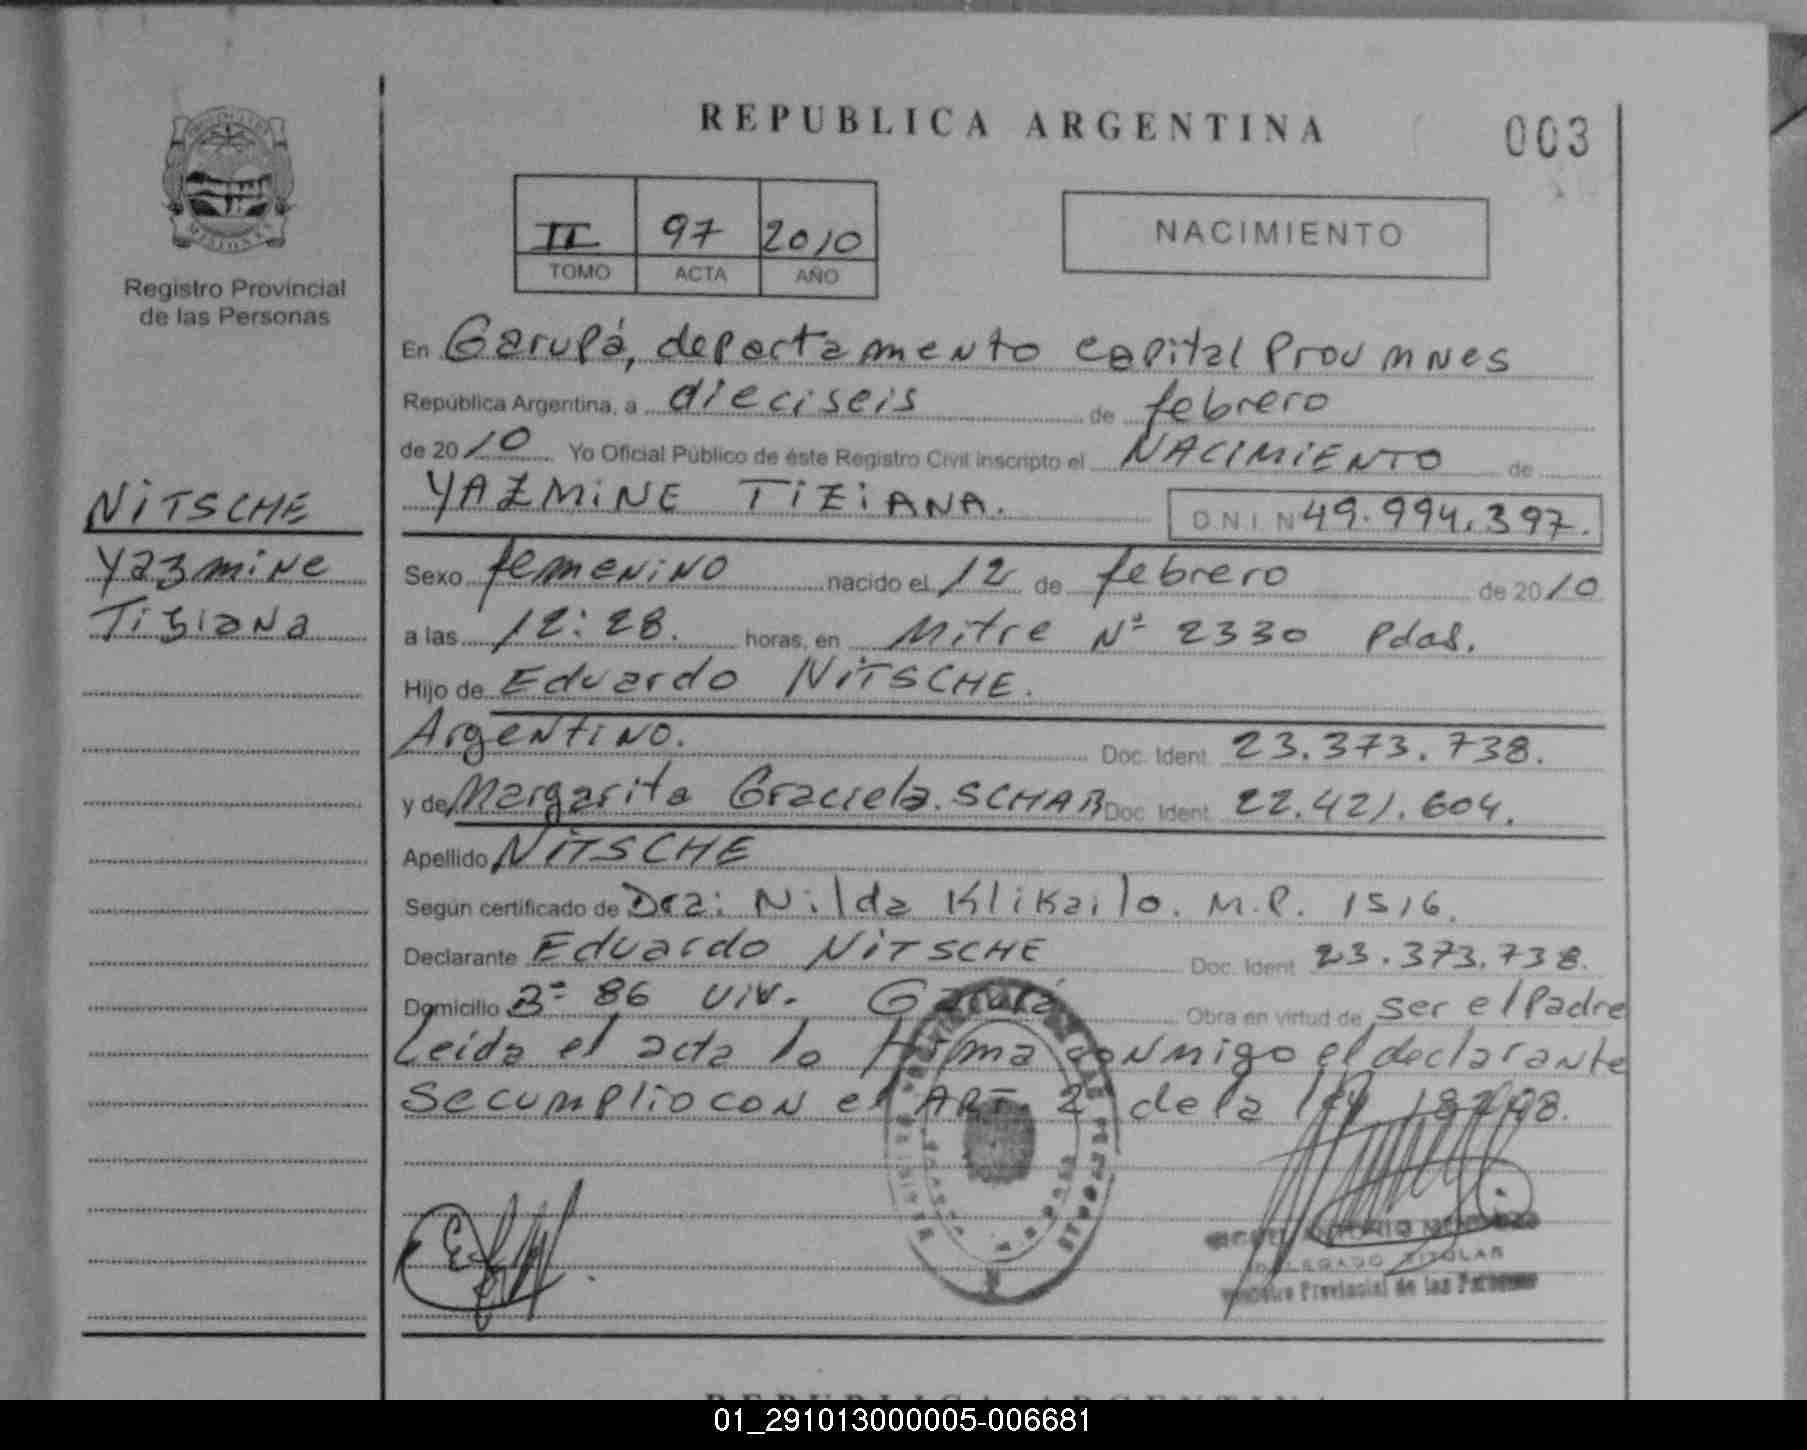 REPUBLICA ARGENTINA
003
II 97 2010
TOMO ACTA AÑO
NACIMIENTO
Registro Provincial
de las Personas
En Garupá, departamento capital Prov mnes
República Argentina, a dieciseis de febrero
de 2010 Yo Oficial Público de éste Registro Civil inscripto el NACIMIENTO de
YAZMINE TIZIANA. D.N.I. N 49.994.397.
NITSCHE
Yazmine
Tiziana
Sexo femenino nacido el 12 de febrero de 2010
a las 12:28. horas, en Mitre Nº 2330 Pdas.
Hijo de Eduardo NITSCHE.
Argentino. Doc. Ident. 23.373.738.
y de Margarita Graciela SCHAB Doc. Ident. 22.421.604.
Apellido NITSCHE
Según certificado de Dra: Nilda Klikailo. M.P. 1516.
Declarante Eduardo NITSCHE Doc. Ident. 23.373.738.
Domicilio Bº 86 viv. Garupá Obra en virtud de ser el Padre
Leida el acta la firma conmigo el declarante
Se cumplio con el ART. 2 de la ley
ANTONIO
DELEGADO TITULAR
Registro Provincial de las Personas
01_291013000005-006681